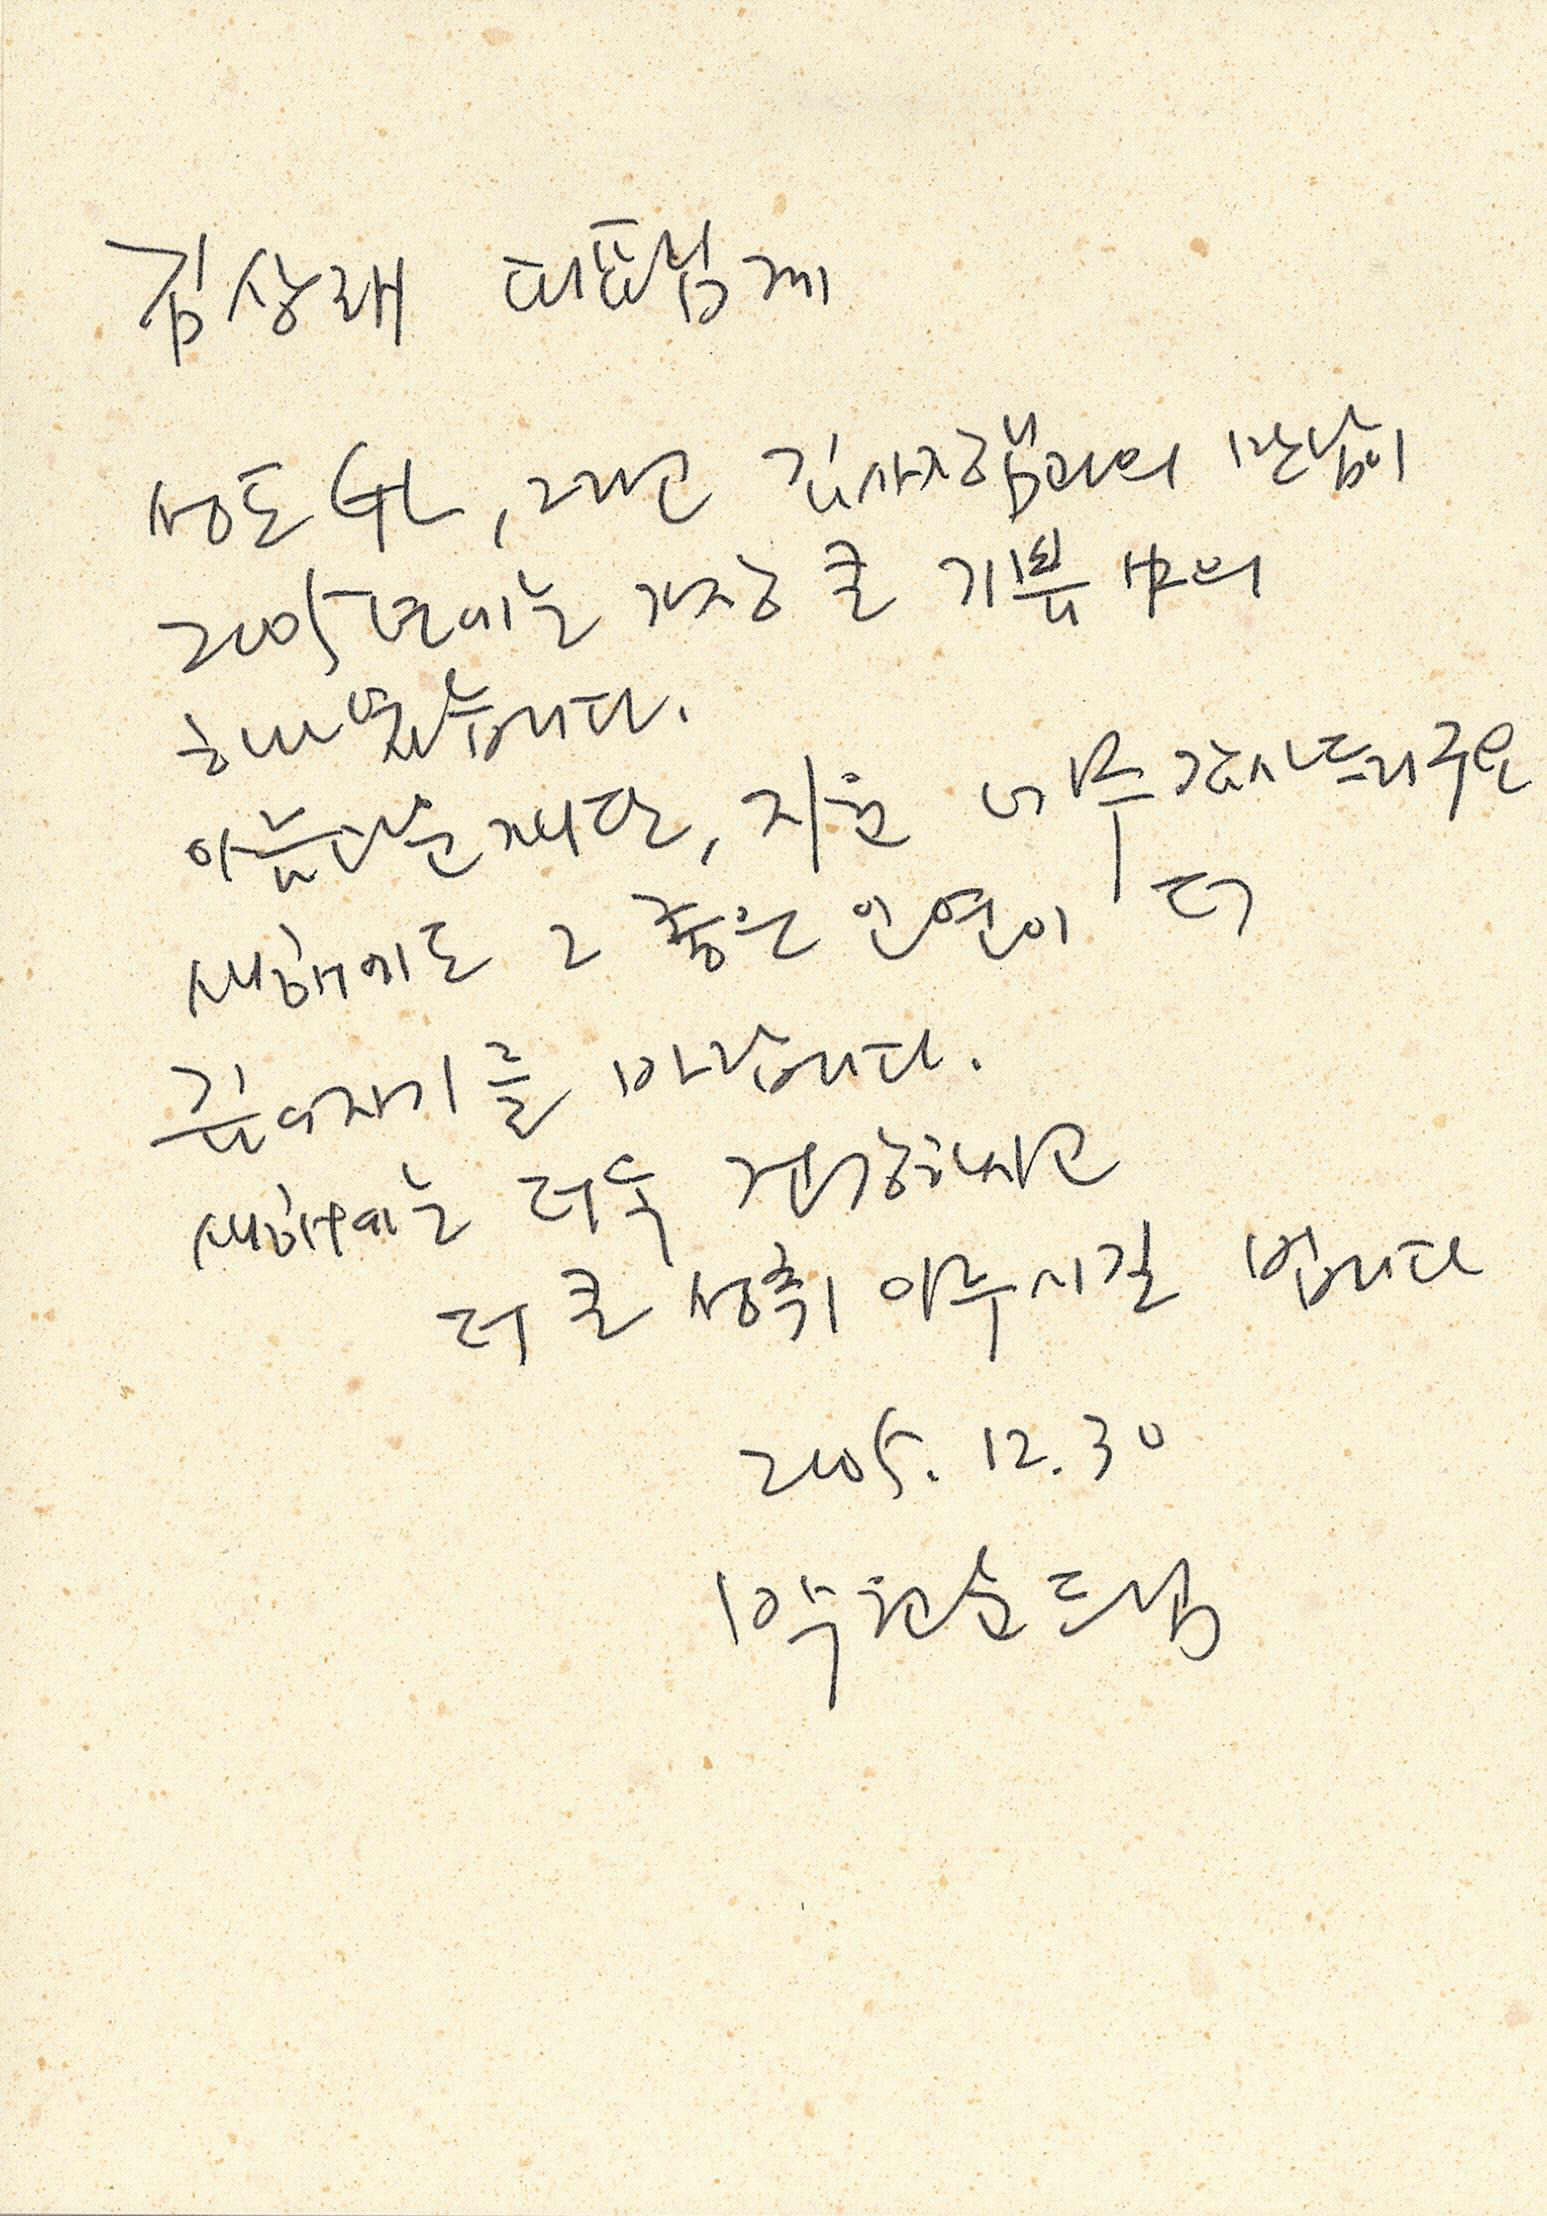 김상래 대표님께
성도GL, 그리고 김사장님과의 만남이
2005년에는 가장 큰 기쁨 中의
하나였습니다.
아름다운재단, 지원 너무 감사드리구요
새해에도 그 좋은 인연이 더
깊어지기를 바랍니다.
새해에는 더욱 건강하시고
더 큰 성취 이루시길 빕니다
2005. 12. 30
박원순 드림